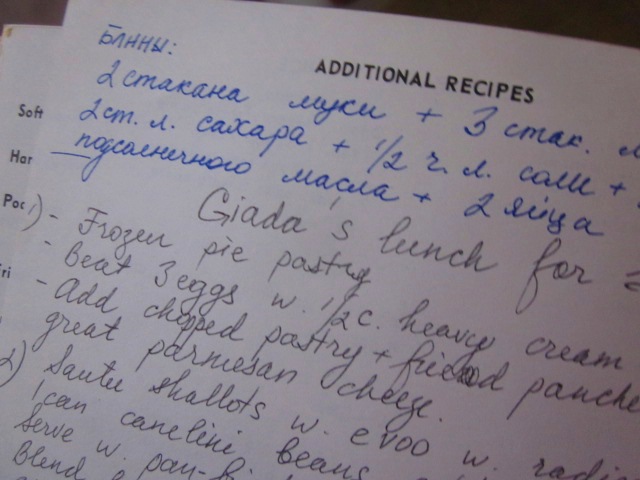 Блины:
ADDITIONAL RECIPES
2 стакана муки + 3 стак.
2 ст. л. сахара + 1/2 ч. л. соли +
подсолнечного масла + 2 яйца
Giada's lunch for
1) - Frozen pie pastry
- Beat 3 eggs w. 1/2 c. heavy cream
- Add chopped pastry + fried
great parmesan cheese.
2) Saute shallots w. evoo w.
1 can canelini beans
Serve w.
Blend
Soft